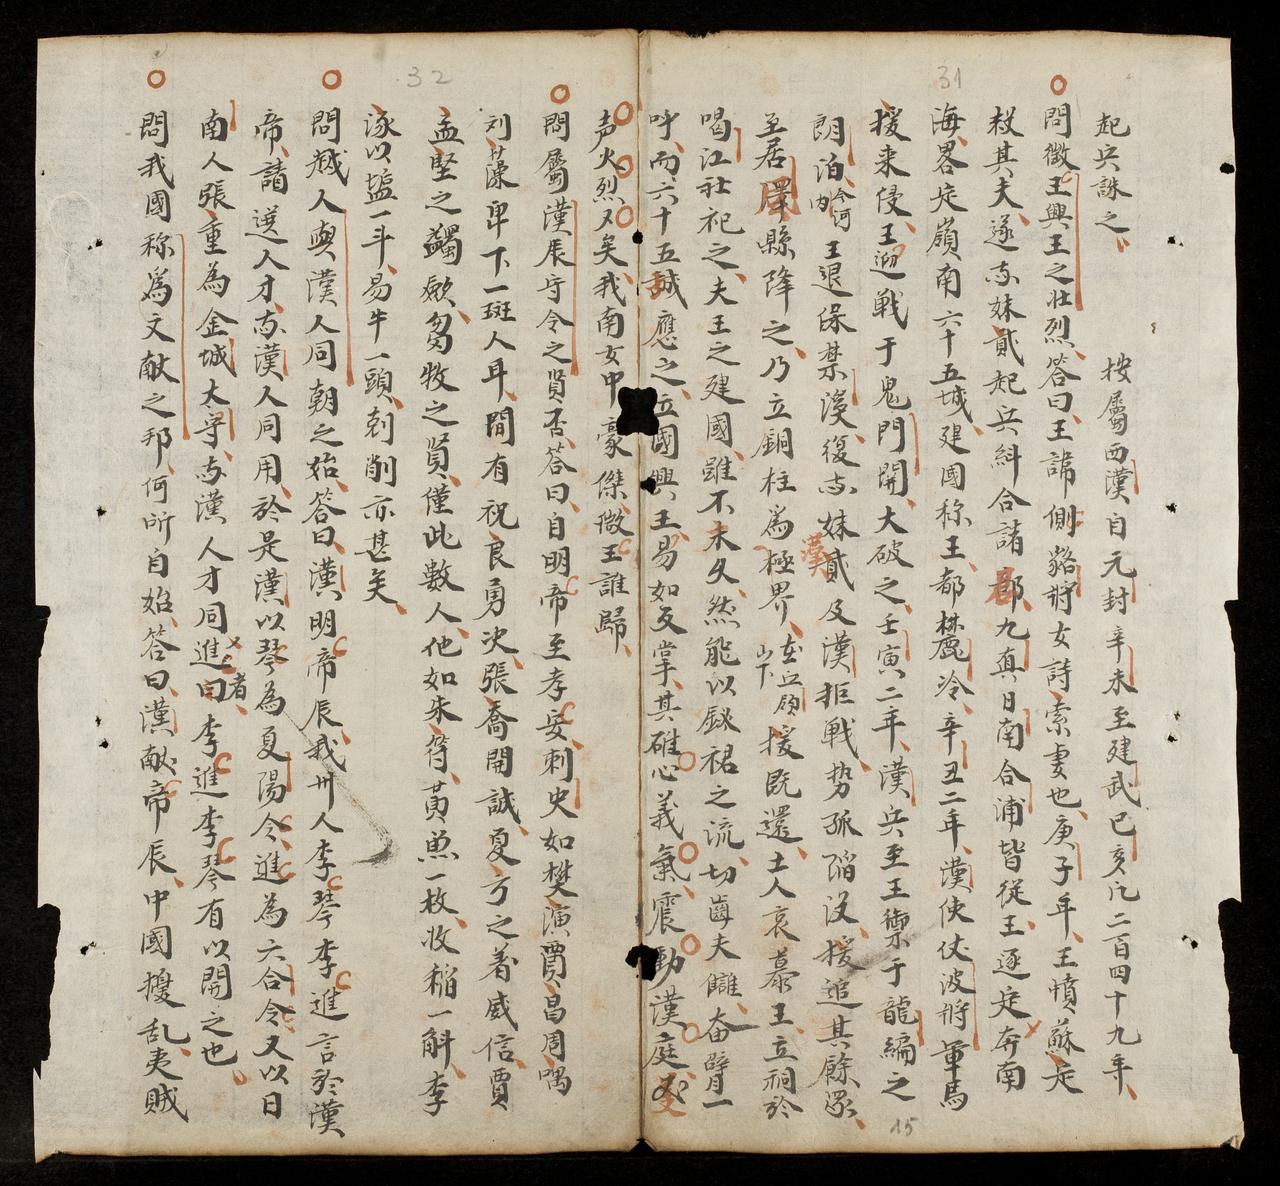 31
起兵誅之　　按屬西漢自元封辛未至建武己亥凡二百四十九年
問徵王興王之壮烈答曰王諱側貉將女詩索妻也庚子年王憤蘇定
殺其夫遂与妹貳起兵糾合諸郡九真日南合浦皆從王逐定奔南
海畧定嶺南六十五城建國称王都麊冷辛丑二年漢使伏波將軍馬
援来侵王迎戦于鬼門開大破之壬寅二年漢兵至王禦于龍編之
朗泊今河内王退保禁溪復与妹貳及漢拒戦势孤陷没援追其餘眾
至居風縣降之乃立銅柱為極界在丘頭山下援既還土人哀慕王立祠於
漢
喝江社祀之夫王之建國雖不未久然能以釵裙之流切齒夫讎奋臂一
呼而六十五城應之立國興王易如反掌其雄心義氣震動漢庭
声火烈烈矣我南女中豪傑徵王誰歸
15
32
問屬漢辰守令之賢否答曰自明帝至孝安刺史如樊演賈昌周喁
刘藻卑下一斑人耳間有祝良勇次張喬開誠夏方之着威信賈
孟堅之蠲厥芻牧之賢僅此數人他如朱符黄魚一枚收稲一斛李
涿以塩一斗易牛一頭剋削亦甚矣
問越人與漢人同朝之始答曰漢明帝辰我州人李琴李進言於漢
帝請選人才与漢人同用於是漢以琴為夏陽令進為六合令又以日
南人張重為金城大守与漢人才同進者曰李進李琴有以開之也
問我國称為文献之邦何所自始答曰漢献帝辰中國擾乱夷賊